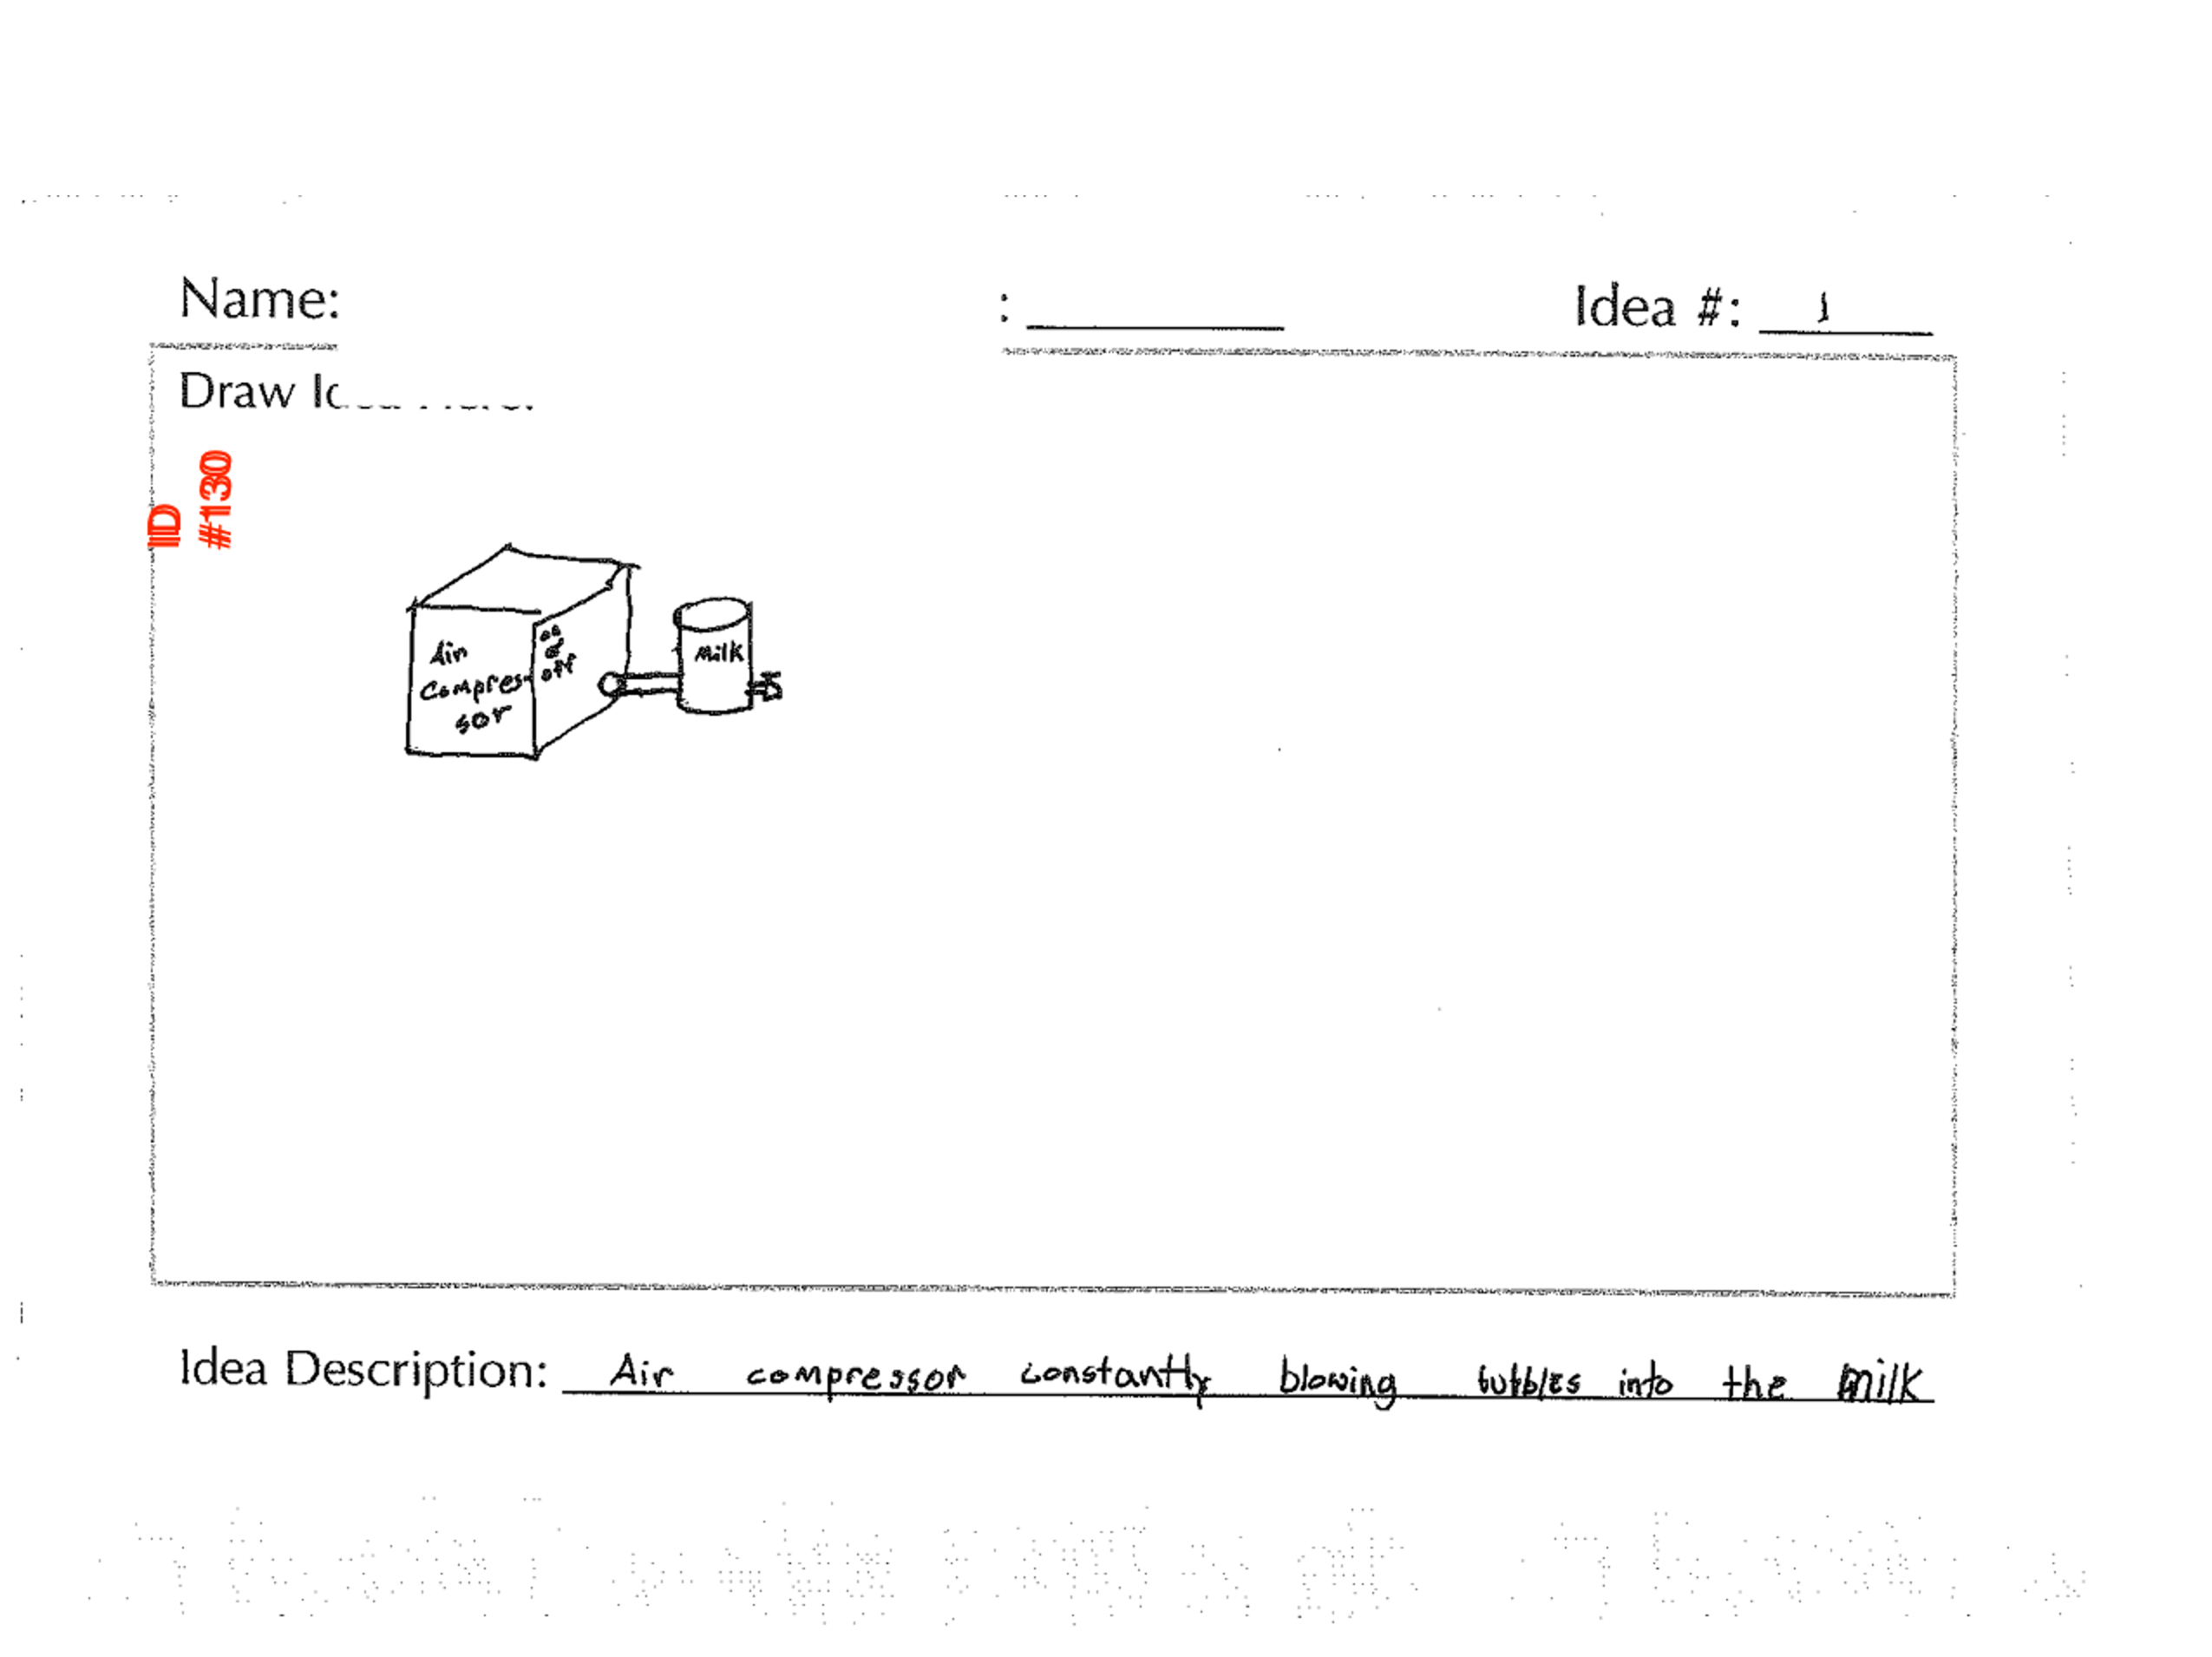 Name:
:
Idea #: 1
Draw
ID
#130
Air
Compres-
sor
off
Milk
Idea Description: Air compressor constantly blowing bubbles into the milk